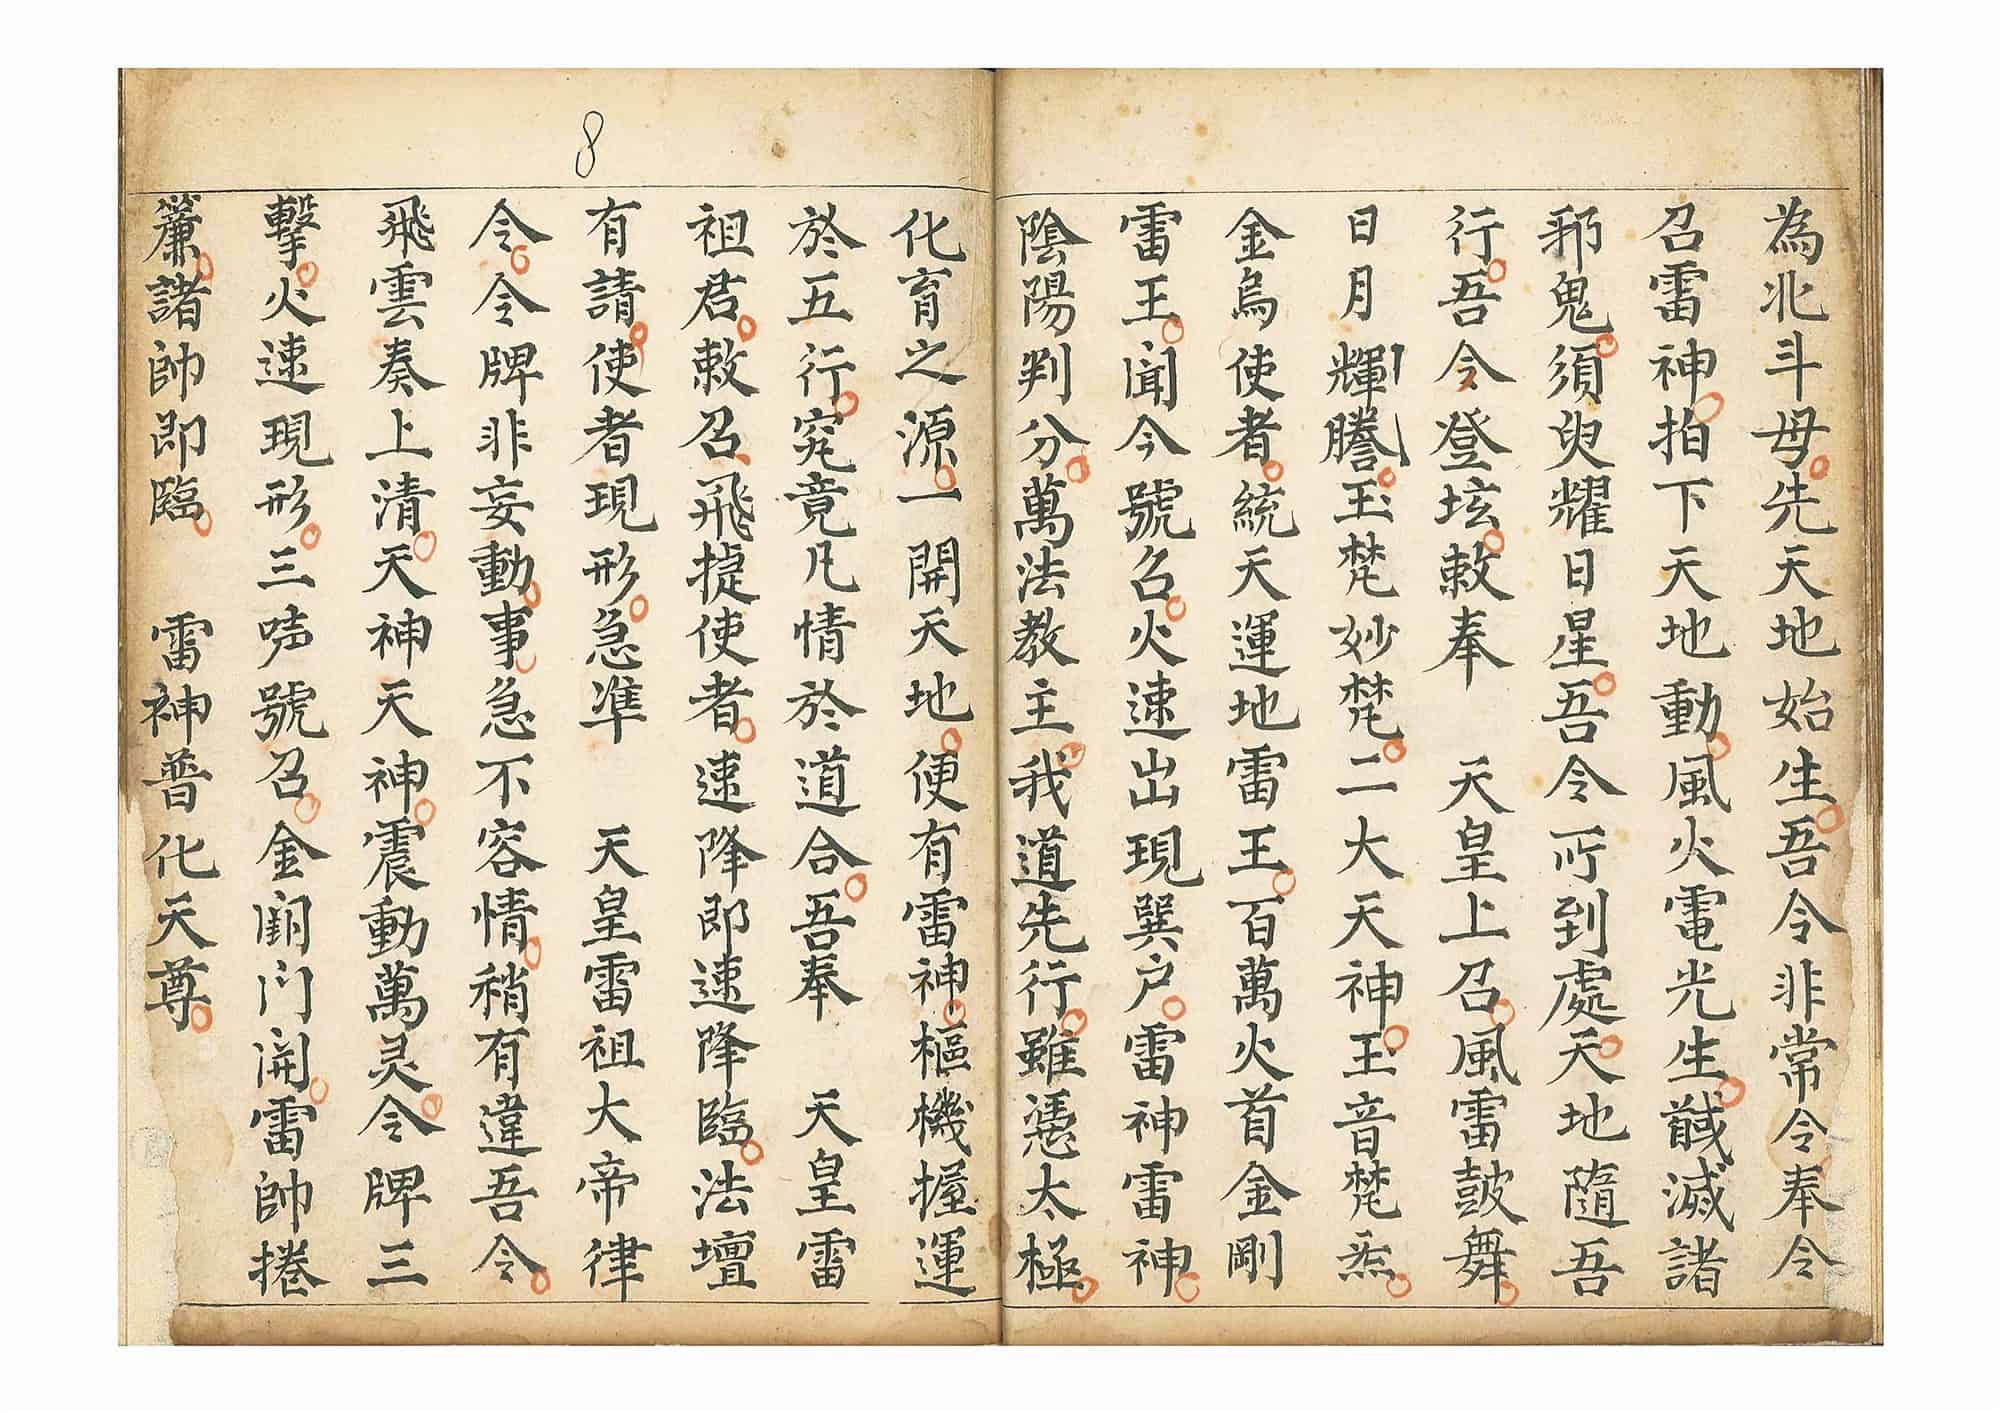 為北斗母。先天地始生。吾令非常令奉令
召雷神。拍下天地動。風火電光生。馘滅諸
邪鬼。須臾耀日星。吾令所到處。天地隨吾
行。吾今登坛。敕奉 天皇上召。風雷鼓舞。
日月輝騰。玉梵妙梵。二大天神。玉音梵炁。
金烏使者。統天運地雷王。百萬火首金剛
雷王。聞今號召。火速出現巽户。雷神雷神。
陰陽判分。萬法教主。我道先行。雖憑太極。
化育之源。一開天地。便有雷神。樞機握運
於五行。究竟凡情於道合。吾奉 天皇雷
祖君。敕召飛捷使者。速降即速降臨。法壇
有請。使者現形。急準 天皇雷祖大帝律
令。令牌非妄動。事急不容情。稍有違吾令。
飛雲奏上清。天神天神。震動萬灵。令牌三
擊。火速現形。三声號召。金闕门開。雷帥捲
簾。諸帥即臨。 雷神普化天尊。
8